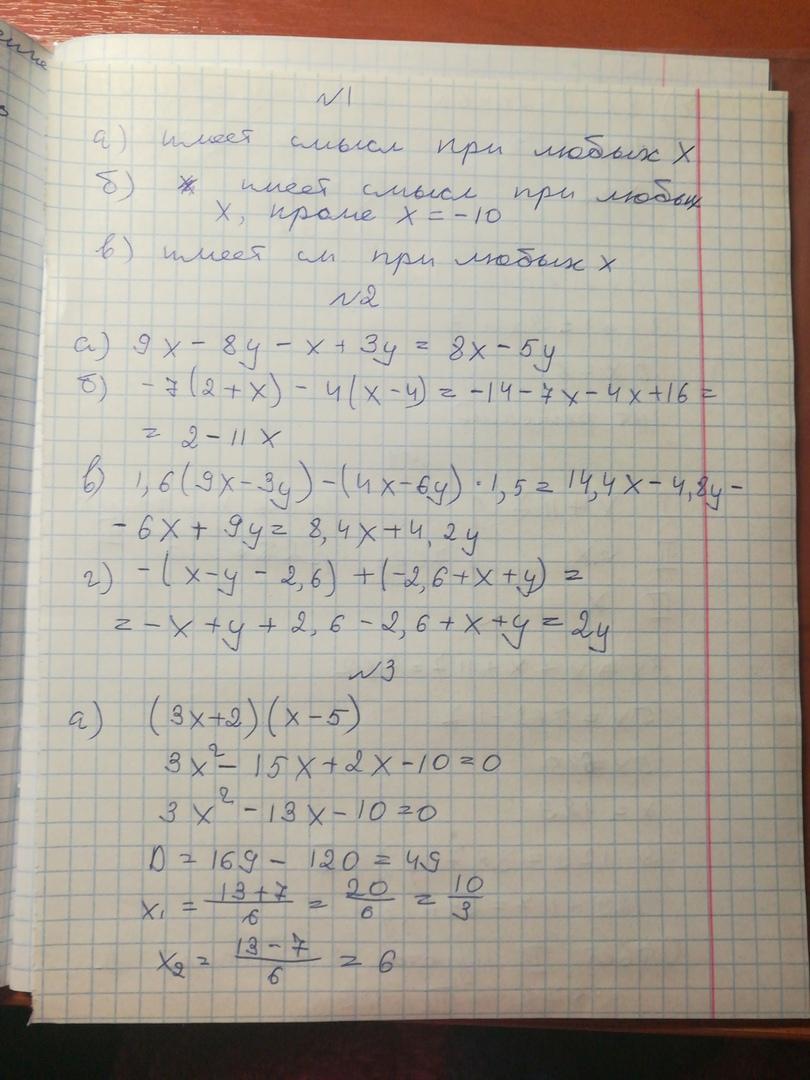 №1
а) имеет смысл при любых X
б) имеет смысл при любых
X, кроме X = -10
в) имеет см при любых x
№2
а) 9x - 8y - x + 3y = 8x - 5y
б) -7(2+x) - 4(x-4) = -14 - 7x - 4x + 16 =
= 2 - 11x
в) 1,6(9x-3y) - (4x-6y) · 1,5 = 14,4x - 4,8y -
- 6x + 9y = 8,4x + 4,2y
г) -(x-y-2,6) + (-2,6+x+y) =
= -x + y + 2,6 - 2,6 + x + y = 2y
№3
а) (3x+2)(x-5)
3x² - 15x + 2x - 10 = 0
3x² - 13x - 10 = 0
D = 169 - 120 = 49
x₁ = (13+7)/6 = 20/6 = 10/3
x₂ = (13-7)/6 = 6